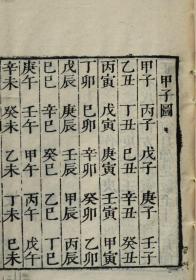 甲子圖
甲子 丙子 戊子 庚子 壬子
乙丑 丁丑 己丑 辛丑 癸丑
丙寅 戊寅 庚寅 壬寅 甲寅
丁卯 己卯 辛卯 癸卯 乙卯
戊辰 庚辰 壬辰 甲辰 丙辰
己巳 辛巳 癸巳 乙巳 丁巳
庚午 壬午 甲午 丙午 戊午
辛未 癸未 乙未 丁未 己未